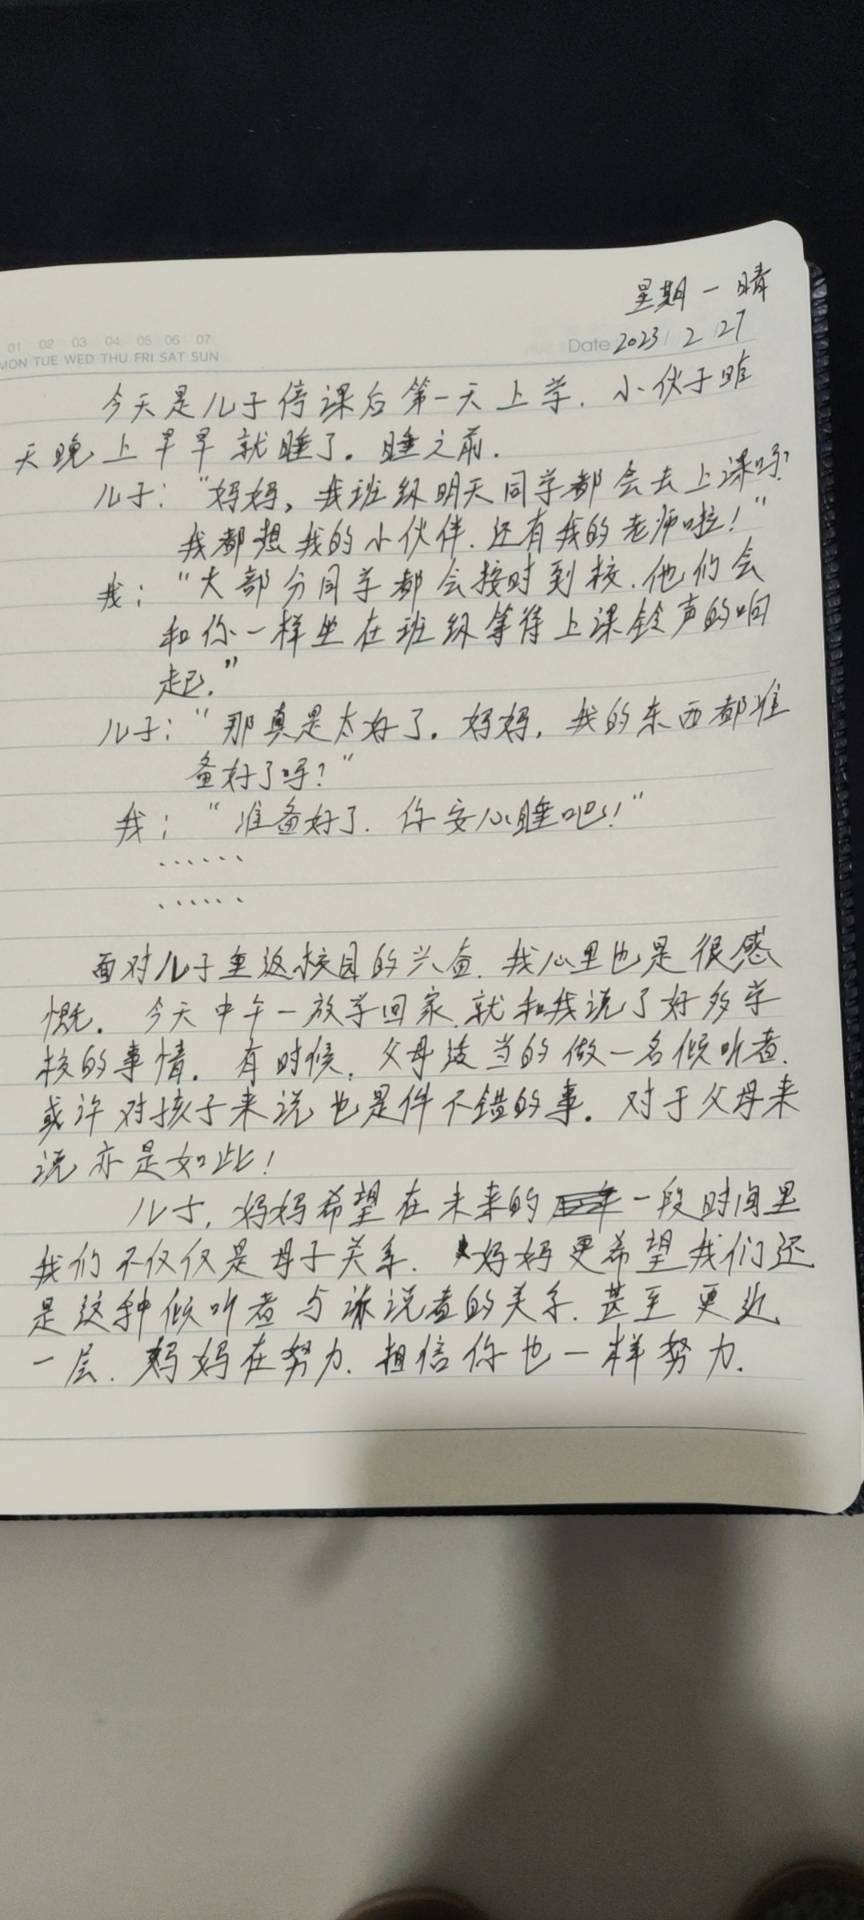 星期一 晴
01 02 03 04 05 06 07
MON TUE WED THU FRI SAT SUN
Date 2023 / 2 / 27
今天是儿子停课后第一天上学. 小伙子昨
天晚上早早就睡了。睡之前.
儿子：“妈妈，我班级明天同学都会去上课吗?
我都想我的小伙伴. 还有我的老师啦！”
我：“大部分同学都会按时到校. 他们会
和你一样坐在班级等待上课铃声的响
起.”
儿子：“那真是太好了。妈妈, 我的东西都准
备好了吗？”
我：“准备好了. 你安心睡吧!”
......
......
面对儿子重返校园的兴奋. 我心里也是很感
慨. 今天中午一放学回家. 就和我说了好多学
校的事情. 有时候, 父母适当的做一名倾听者.
或许对孩子来说也是件不错的事. 对于父母来
说亦是如此!
儿子, 妈妈希望在未来的一段时间里
我们不仅仅是母子关系. 妈妈更希望我们还
是这种倾听者与诉说者的关系. 甚至更近
一层. 妈妈在努力. 相信你也一样努力.